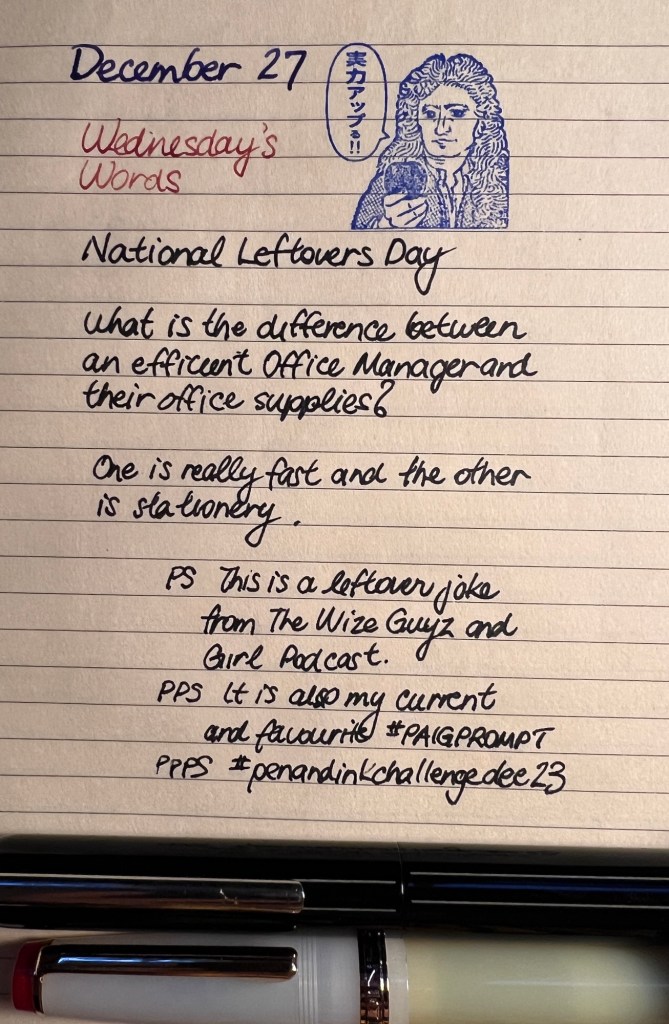 December 27
実力アップる!!
Wednesday's
Words
National Leftovers Day
What is the difference between
an efficent Office Manager and
their office supplies?
One is really fast and the other
is stationery.
PS This is a leftover joke
from The Wize Guyz and
Gurl Podcast.
PPS It is also my current
and favourite #PAIGPROMPT
PPPS #penandinkchallengedec23